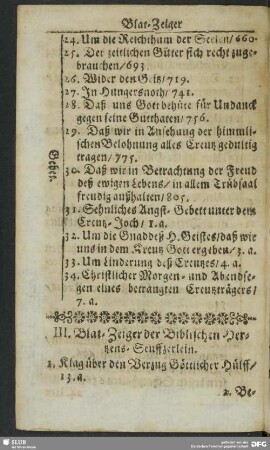 Blat-Zeiger
24. Um die Reichthum der Seelen/660.
25. Der zeitlichen Güter sich recht zuge-
brauchen/693
26. Wider den Geitz/719.
27. In Hungersnoth/741.
28. Daß uns Gott behüte für Undanck
gegen seine Gutthaten/756.
29. Daß wir in Ansehung der himmli-
schen Belohnung alles Creutz gedultig
tragen/775.
30. Daß wir in Betrachtung der Freud
deß ewigen Lebens/in allem Trübsaal
freudig außhalten/805.
31. Sehnliches Angst-Gebett unter dem
Creutz-Joch/1.a.
32. Um die Gnad deß H. Geistes/daß wir
uns in dem Kreutz Gott ergeben/3.a.
33. Um Linderung deß Creutzes/4.a.
34. Christlicher Morgen- und Abendse-
gen eines betrangten Creutzträgers/
7.a.
Gebet.
III. Blat-Zeiger der Biblischen Her-
tzens-Seuffzerlein.
1. Klag über den Verzug Göttlicher Hülff/
13.a.
2. Be-
SLUB
DFG